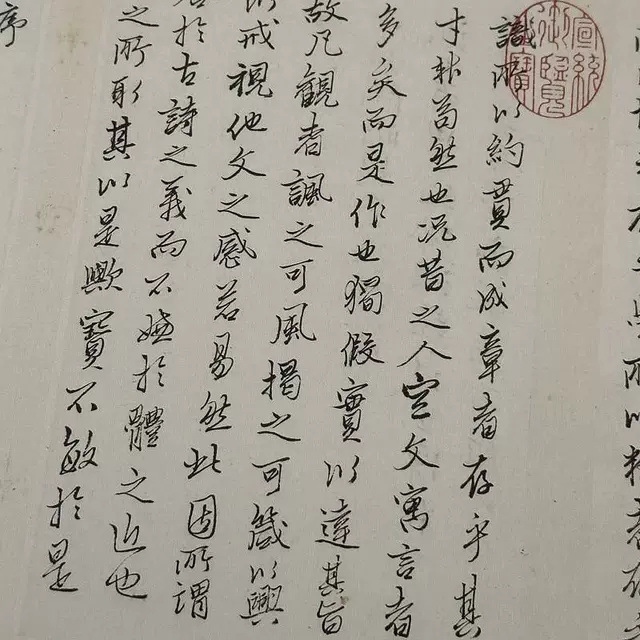 宣統
御覽
之寶
所以精者存
識所以約貫而成章者存乎其
才非苟然也况昔之人空文寓言者
多矣而是作也獨假實以達其旨
故凡觀者諷之可風揭之可箴以興
以戒視他文之感若易然此因所謂
於古詩之義而不嫌於體之近也
之所取其以是歟寶不敏於是
序